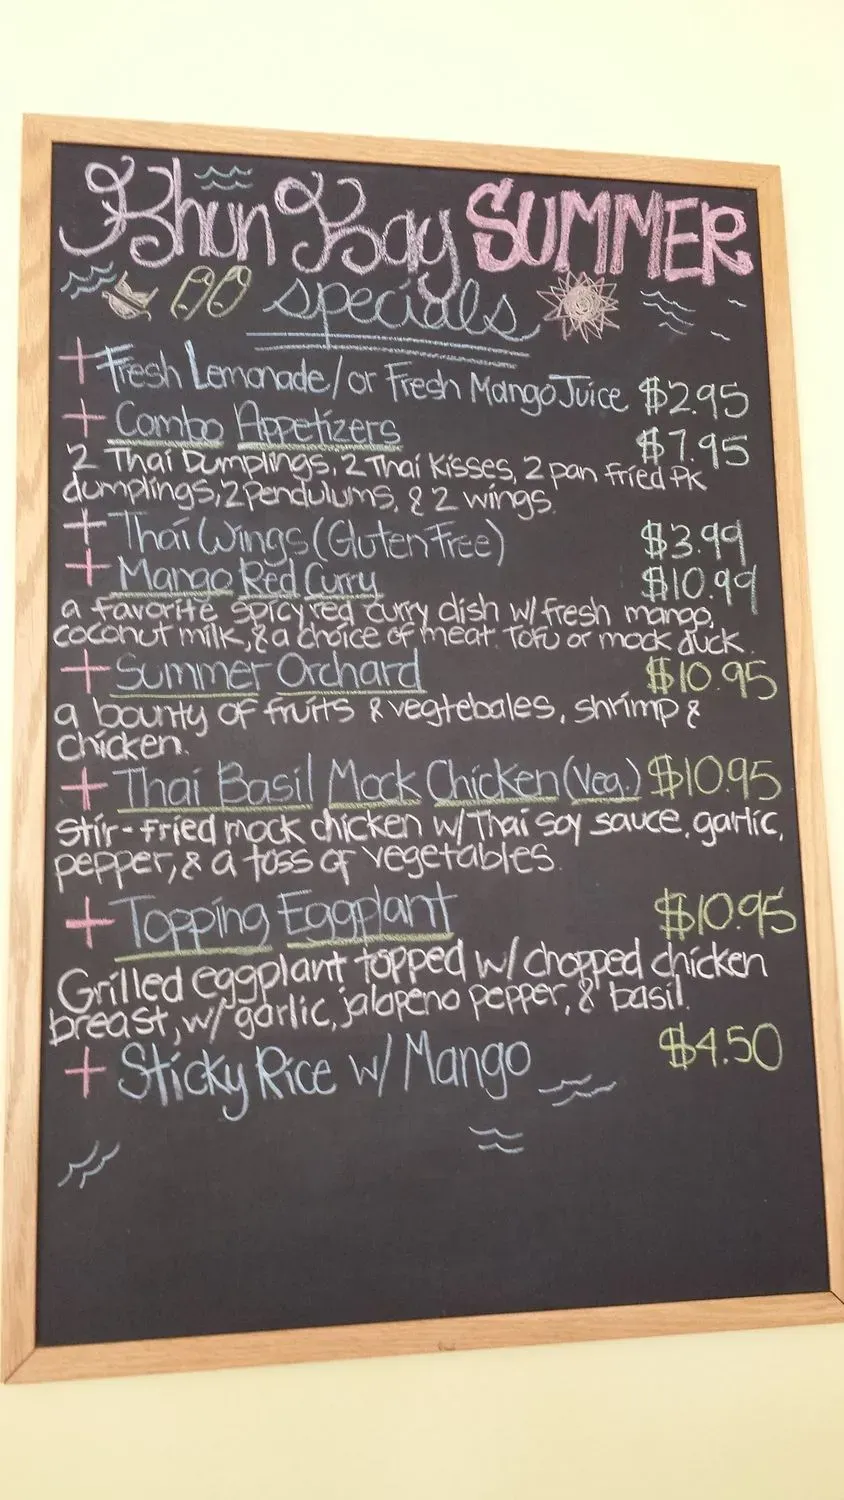 Khun Kay SUMMER
specials
+ Fresh Lemonade/or Fresh Mango Juice $2.95
+ Combo Appetizers $7.95
2 Thai Dumplings, 2 Thai Kisses, 2 pan fried Pk
dumplings, 2 Pendulums, & 2 wings.
+ Thai Wings (Gluten Free) $3.99
+ Mango Red Curry $10.99
a favorite spicy red curry dish w/ fresh mango,
coconut milk, & a choice of meat. Tofu or mock duck.
+ Summer Orchard $10.95
a bounty of fruits & vegtebales, shrimp &
chicken.
+ Thai Basil Mock Chicken (Veg.) $10.95
Stir-fried mock chicken w/ Thai soy sauce, garlic,
pepper, & a toss of vegetables.
+ Topping Eggplant $10.95
Grilled eggplant topped w/ chopped chicken
breast, w/ garlic, jalapeno pepper, & basil.
+ Sticky Rice w/ Mango $4.50